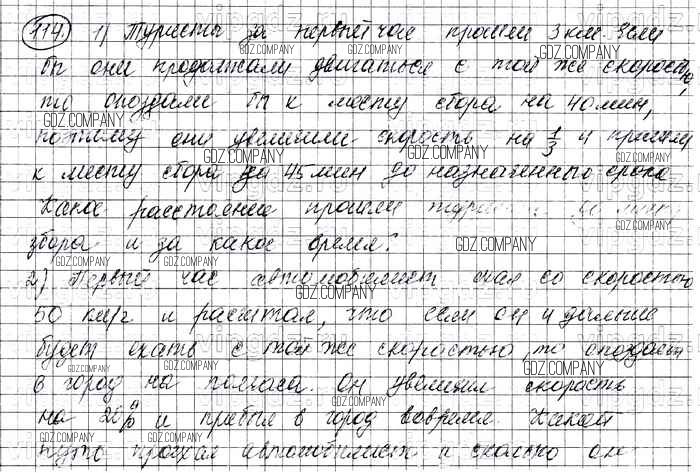 114. 1) Туристы за первый час прошли 3 км. Если
бы они продолжали двигаться с той же скоростью,
то опоздали бы к месту сбора на 40 мин,
поэтому они увеличили скорость на 1/3 и пришли
к месту сбора за 45 мин до назначенного срока
Какое расстояние прошли
сбора и за какое время?
2) Первый час автомобилист ехал со скоростью
50 км/г и расчитал, что если он и дальше
будет ехать с той же скоростью, то опоздает
в город на полчаса. Он увеличил скорость
на 20% и прибыл в город вовремя. Какой
путь проехал автомобилист и сколько он
GDZ.COMPANY